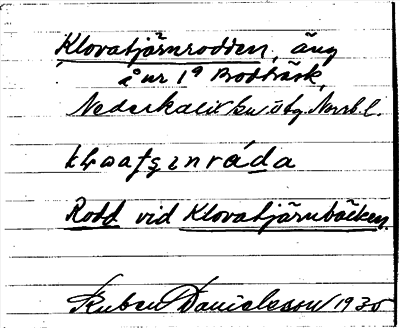 Klovatjärnrodden, äng
å nr 1ª Brodträsk,
Nederkalix sn ö tg. Norrb. l.
Rodd vid Klovatjärnbäcken.
Ruben Danielsson 1935